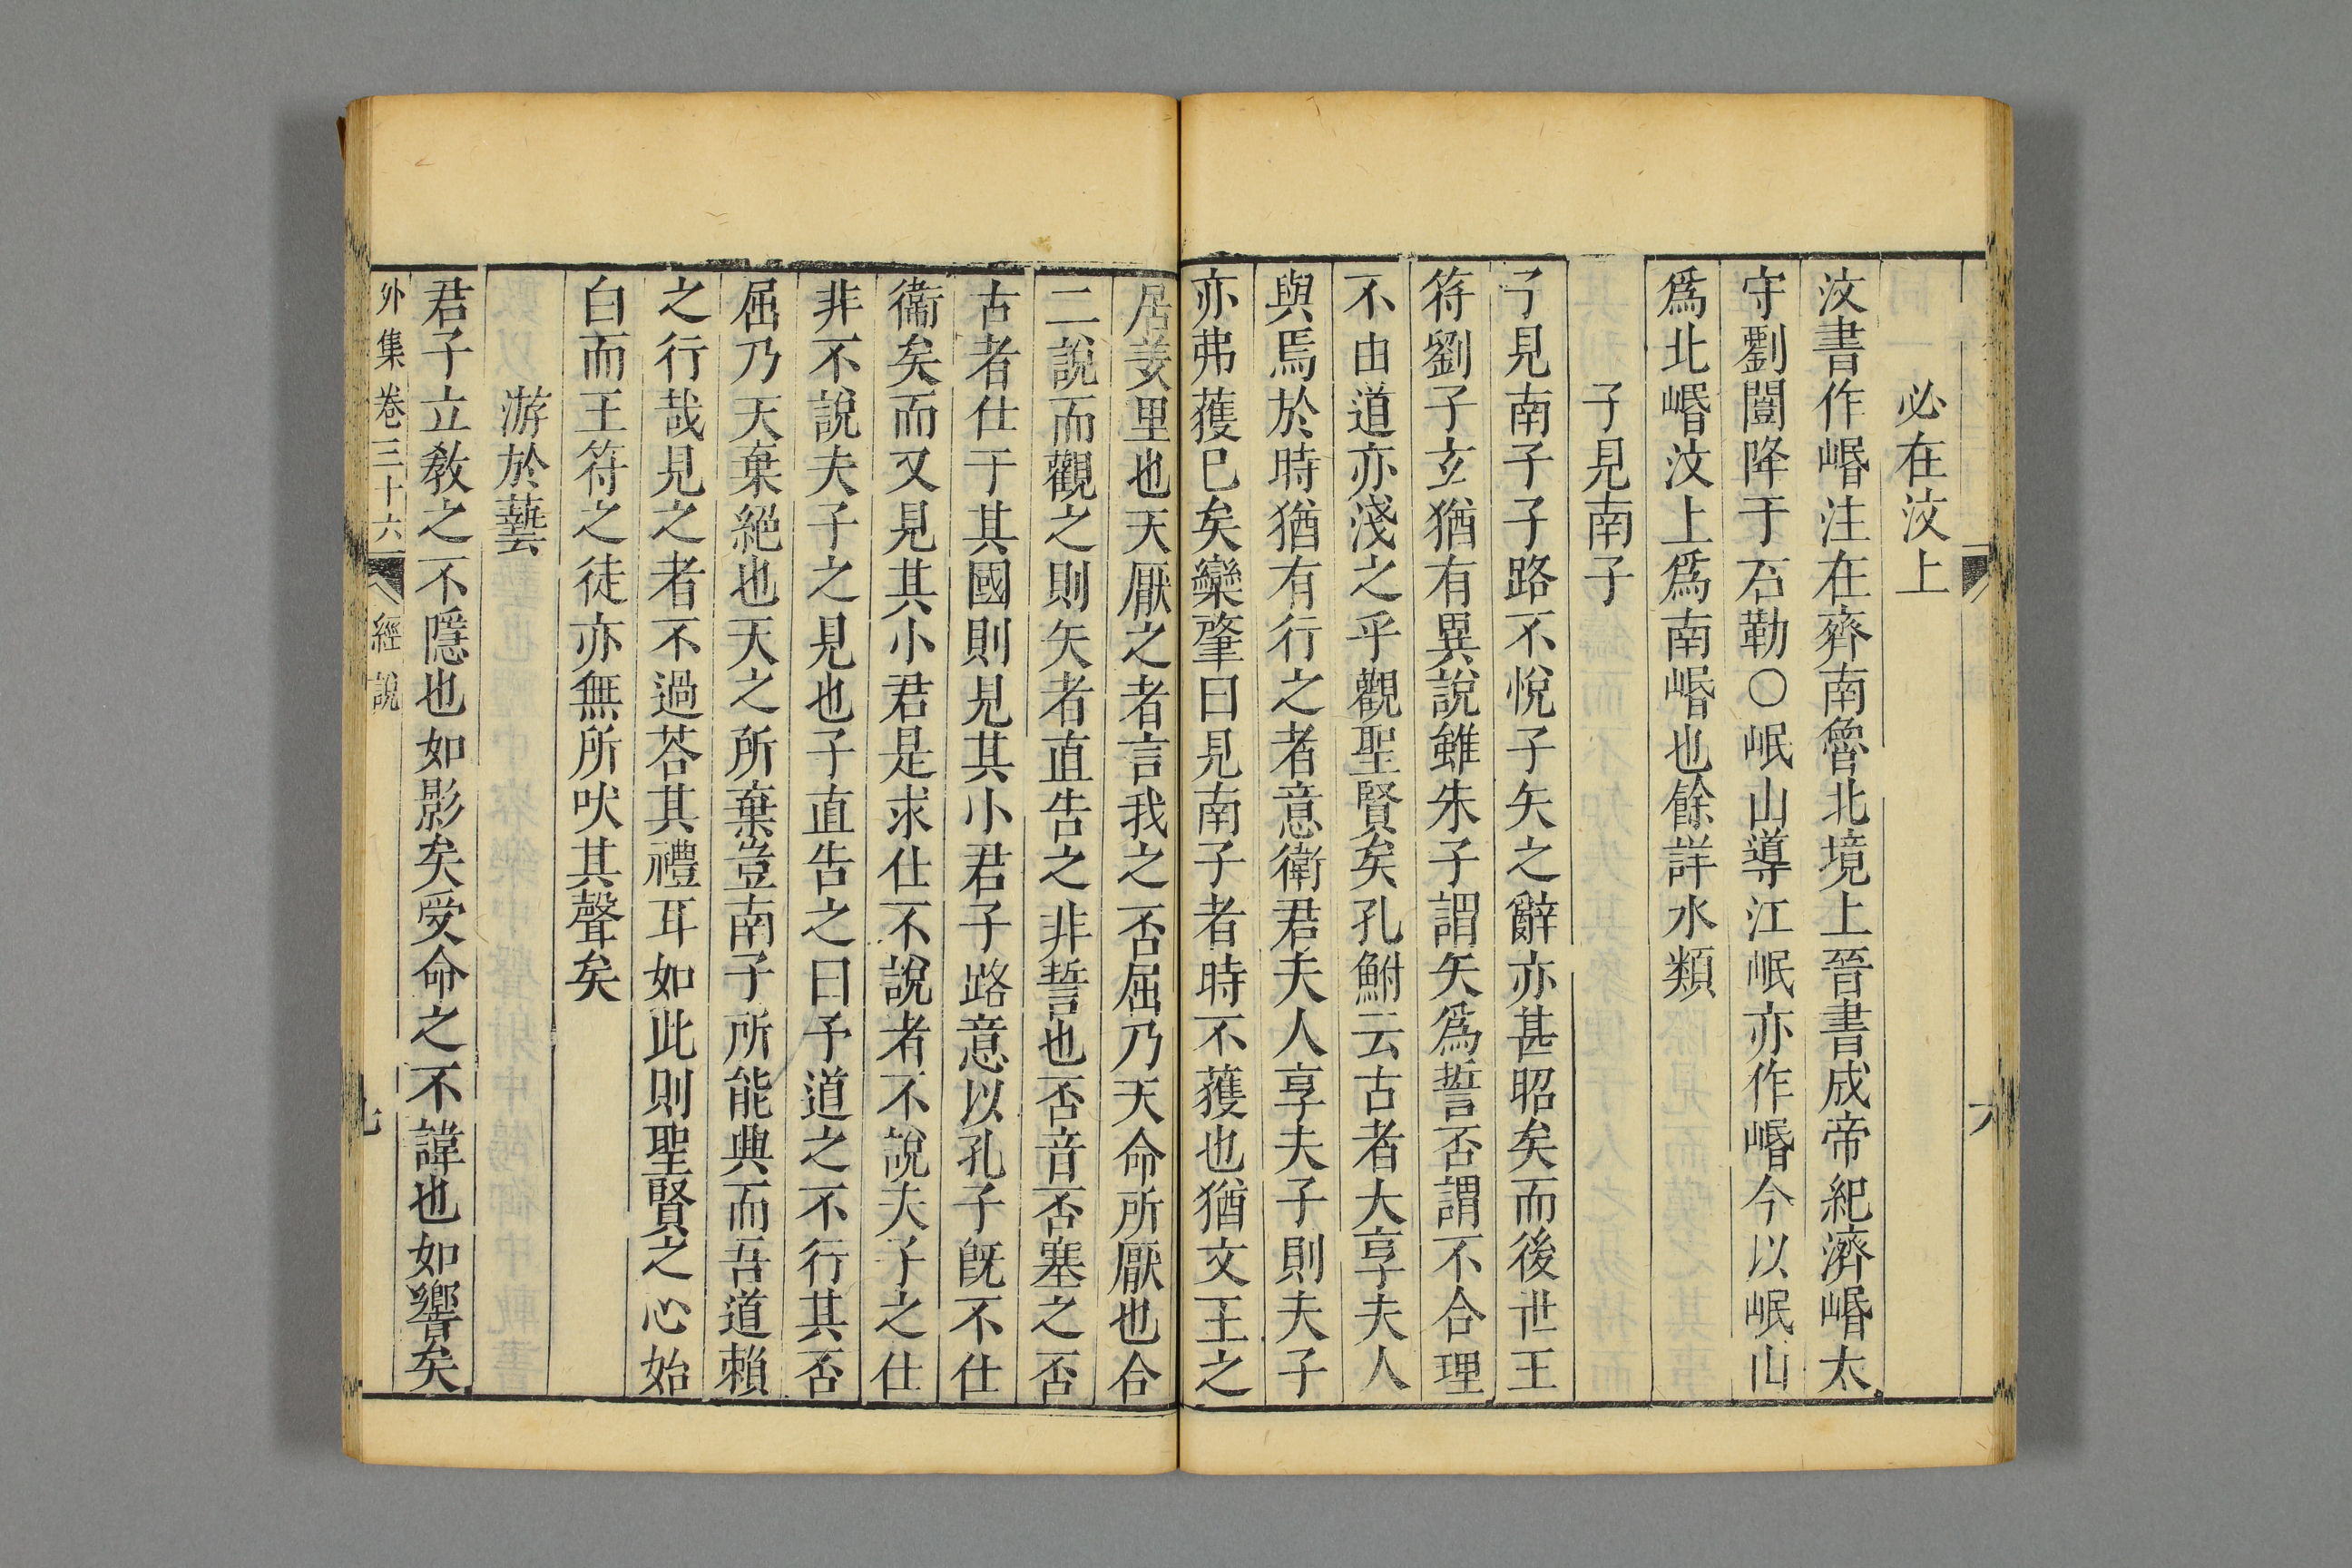 必在汶上
汶書作㟭注在齊南魯北境上晉書成帝紀濟㟭太
守劉闓降于石勒〇岷山導江岷亦作㟭今以岷山
爲北㟭汶上爲南㟭也餘詳水類
子見南子
子見南子子路不悅子矢之辭亦甚昭矣而後世王
符劉子玄猶有異說雖朱子謂矢爲誓否謂不合理
不由道亦淺之乎觀聖賢矣孔鮒云古者大享夫人
與焉於時猶有行之者意衛君夫人享夫子則夫子
亦弗獲已矣欒肇曰見南子者時不獲也猶文王之
居羑里也天厭之者言我之否屈乃天命所厭也合
二說而觀之則矢者直告之非誓也否音否塞之否
古者仕于其國則見其小君子路意以孔子旣不仕
衞矣而又見其小君是求仕不說者不說夫子之仕
非不說夫子之見也子直告之曰予道之不行其否
屈乃天棄絕也天之所棄豈南子所能興而吾道賴
之行哉見之者不過荅其禮耳如此則聖賢之心始
白而王符之徒亦無所吠其聲矣
游於藝
君子立敎之不隱也如影矣受命之不諱也如響矣
外集卷三十六 經說